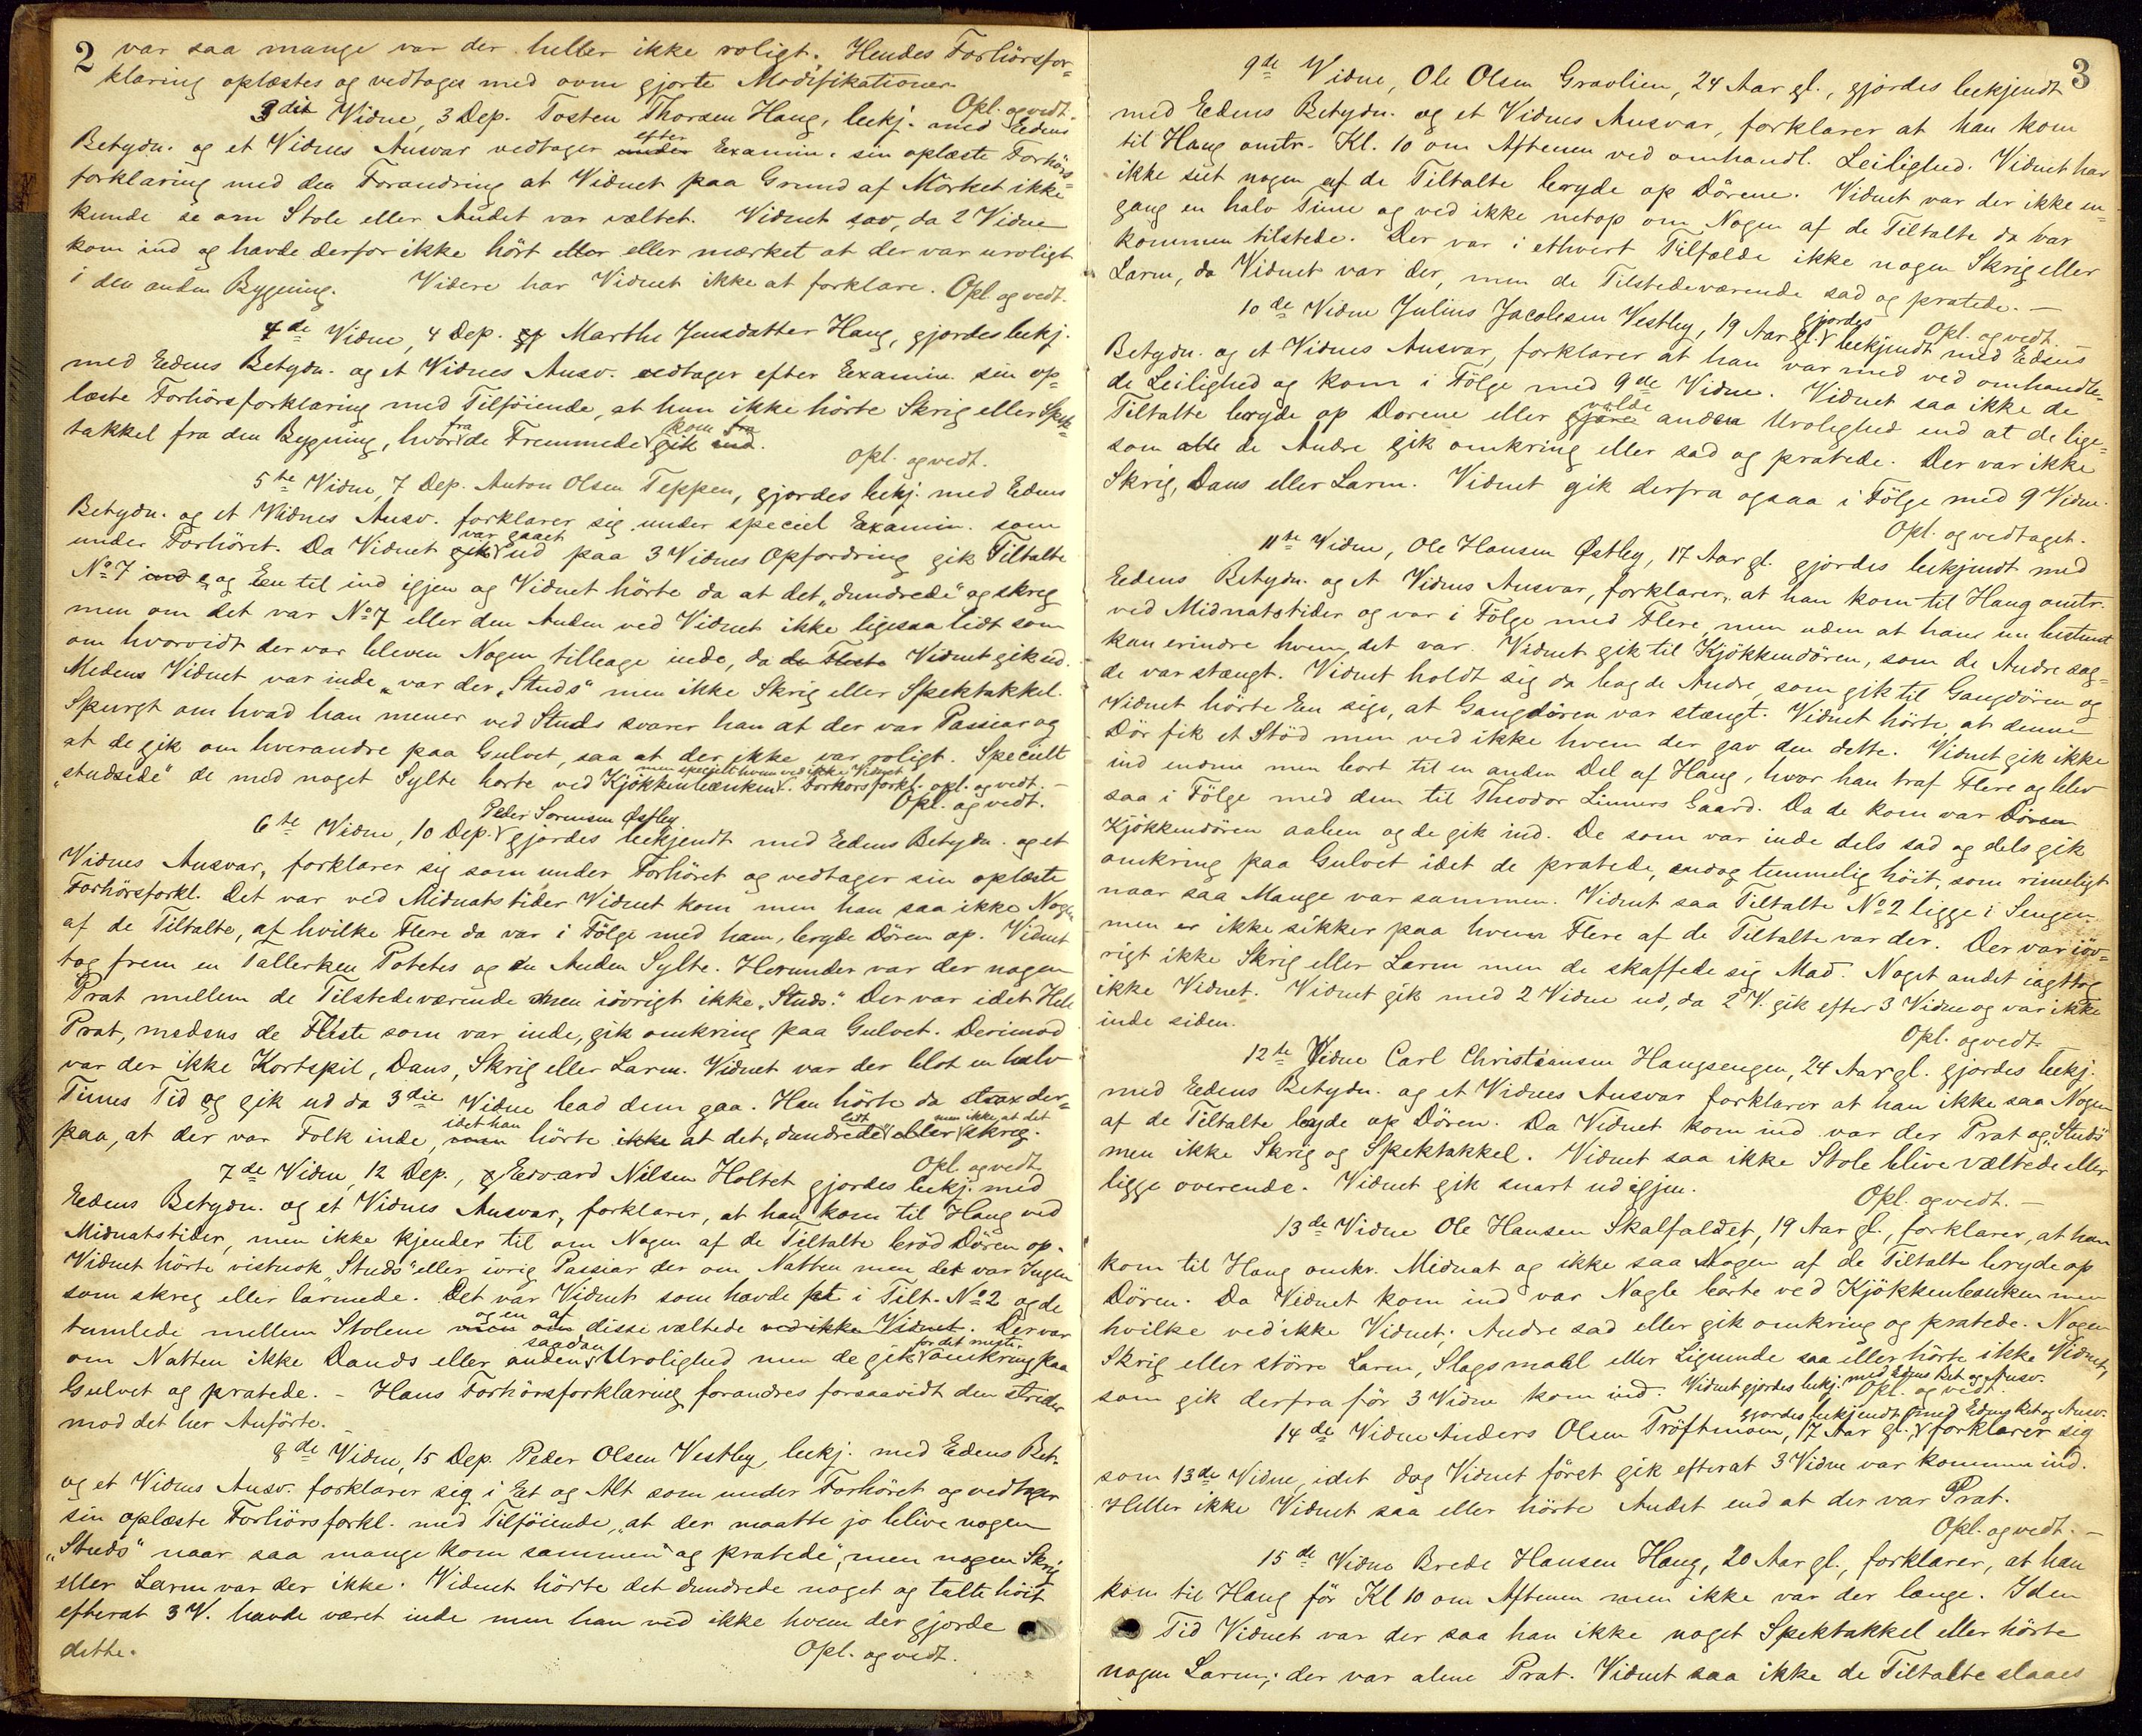 2
var saa mange var der heller ikke roligt. Hendes Forhörsfor=
klaring oplæstes og vedtages med ovm gjorte Modifikationer.
Opl. og vedt.
3die Vidne, 3 Dep. Tosten Thorsen Haug, bekj. med Eedens
Betydn. og et Vidnes Ansvar vedtager under efter Examin. sin oplæste Forhörs=
forklaring med den Forandring at Vidnet paa Grund af Mörket ikke
kunde se om Stole eller Andet var væltet. Vidnet sov, da 2 Vidne
kom ind og havde derfor ikke hört eller eller mærket at der var uroligt
i den anden Bygning. Videre har Vidnet ikke at forklare. Opl. og vedt.
4de Vidne, 4 Dep. gj Marthe Jensdatter Haug, gjordes bekj.
med Eedens Betydn. og et Vidnes Ansv. vedtager efter Examin. sin op=
læste Forhörsforklaring med Tilföiende, at hun ikke hörte Skrig eller Spek=
takkel fra den Bygning, hvorfra de Fremmede kom fra gik ind.
Opl. og vedt.
5te Vidne, 7 Dep. Anton Olsen Teppen, gjordes bekj. med Eedens
Betydn. og et Vidnes Ansv. forklarer sig under speciel Examin. som
under Forhöret. Da Vidnet gik var gaaet ud paa 3 Vidnes Opfordring gik Tiltalte
No 7 ind og Een til ind igjen og Vidnet hörte da at det "dundrede" og skreg
men om det var No 7 eller den Anden ved Vidnet ikke ligesaa lidt som
om hvorvidt der var bleven Nogen tilbage inde, da de Fleste Vidnet gik ud.
Medens Vidnet var inde "var der "Studs" men ikke Skrig eller Spektakkel.
Spurgt om hvad han mener ved Studs svarer han at der var Passiar og
at de gik om hverandre paa Gulvet, saa at der ikke var roligt. Specielt
"studsede" de med noget Sylte borte ved Kjökkenbænken men specielt hvem ved ikke Vidnet. Forhörsforkl. opl. og vedt. —
Opl. og vedt.
6te Vidne, 10 Dep. Peder Sörensen Østby gjordes bekjendt med Eedens Betydn. og et
Vidnes Ansvar, forklarer sig som under Forhöret og vedtager sin oplæste
Forhörsforkl. Det var ved Midnatstider Vidnet kom men han saa ikke Nogen
af de Tiltalte, af hvilke Flere da var i Fölge med ham, bryde Dören op. Vidnet
tog frem en Tallerken Potetes og en Anden Sylte. Herunder var der nogen
Prat mellem de Tilstedeværende men iövrigt ikke "Studs." Der var idet Hele
Prat, medens de Fleste som var inde, gik omkring paa Gulvet. Derimod
var der ikke Kortspil, Dans, Skrig eller Larm. Vidnet var der blot en halv
Times Tid og gik ud da 3die Vidne bad dem gaa. Han hörte da strax der=
paa, at der var Folk inde, men idet han hörte ikke at det "dundrede lidt eller men ikke at det skreg.
Opl. og vedt.
7de Vidne, 12 Dep., g Edvard Nilsen Holtet gjordes bekj. med
Eedens Betydn. og et Vidnes Ansvar, forklarer, at han kom til Haug ved
Midnatstider, men ikke kjender til om Nogen af de Tiltalte bröd Dören op.
Vidnet hörte vistnok "Studs" eller ivrig Passiar der om Natten men det var Ingen
som skreg eller larmede. Det var Vidnet som havde fat i Tilt. No 2 og de
tumlede mellem Stolene men om og en af disse væltede ved ikke Vidnet. Der var
om Natten ikke Dands eller anden saadan Urolighed men de gik for det meste omkring paa
Gulvet og pratede. – Hans Forhörsforklaring forandres forsaavidt den strider
mod det her Anförte.
8de Vidne, 15 Dep. Peder Olsen Vestby, bekj. med Eedens Bet.
og et Vidnes Ansv. forklarer sig i Et og Alt som under Forhöret og vedtager
sin oplæste Forhörsforkl. med Tilföiende, "at der maatte jo blive nogen
"Studs" naar saa mange kom sammen og pratede", men nogen Skrig
eller Larm var der ikke. Vidnet hörte det dundrede noget og talte höit
efterat 3 V. havde været inde men han ved ikke hvem der gjorde
dette.
Opl. og vedt.
3
9de Vidne, Ole Olsen Gravlien, 24 Aar gl., gjordes bekjendt
med Eedens Betydn. og et Vidnes Ansvar, forklarer at han kom
til Haug omtr. Kl. 10 om Aftenen ved omhandl. Leilighed. Vidnet har
ikke seet nogen af de Tiltalte bryde op Dörene. Vidnet var der ikke en=
gang en halv Time og ved ikke netop om Nogen af de Tiltalte da var
kommen tilstede. Der var i ethvert Tilfælde ikke nogen Skrig eller
Larm, da Vidnet var der, men de Tilstedeværende sad og pratede. —
Opl. og vedt.
10de Vidne Julius Jacobsen Vestby, 19 Aar gl. gjordes bekjendt med Eedens
Betydn. og et Vidnes Ansvar, forklarer at han var med ved omhandle=
de Leilighed og kom i Fölge med 9de Vidne. Vidnet saa ikke de
Tiltalte bryde op Dorene eller gjöre volde anden Urolighed end at de lige=
som alle de Andre gik omkring eller sad og pratede. Der var ikke
Skrig, Dans eller Larm. Vidnet gik derfra ogsaa i Fölge med 9 Vidne.
Opl. og vedtaget.
11te Vidne, Ole Hansen Østby, 17 Aar gl. gjordes bekjendt med
Eedens Betydn. og et Vidnes Ansvar, forklarer, at han kom til Haug omtr.
ved Midnatstider og var i Fölge med Flere, men uden at han nu bestemt
kan erindre hvem det var. Vidnet gik til Kjökkendören, som de Andre sag=
de var stængt. Vidnet holdt sig da bag de Andre, som gik til Gangdören og
Vidnet hörte En sige, at Gangdören var stængt. Vidnet hörte, at denne
Dör fik et Stöd men ved ikke hvem der gav den dette. Vidnet gik ikke
ind endnu men bort til en anden Del af Haug, hvor han traf Flere og blev
saa i Fölge med dem til Theodor Linners Gaard. Da de kom var Dören
Kjökkendören aaben og de gik ind. De som var inde dels sad og dels gik
omkring paa Gulvet idet de pratede, endog temmelig höit, som rimeligt
naar saa Mange var sammen. Vidnet saa Tiltalte No 2 ligge i Sengen
men er ikke sikker paa hvem Flere af de Tiltalte var der. Der var iöv=
rigt ikke Skrig eller Larm men de skaffede sig Mad. Noget andet iagttog
ikke Vidnet. Vidnet gik med 2 Vidne ud, da 2 V. gik efter 3 Vidne og var ikke
inde siden.
Opl. og vedt.
12te Vidne Carl Christiansen Haugsengen, 24 Aar gl. gjordes bekj.
med Eedens Betydn. og et Vidnes Ansvar forklarer at han ikke saa Nogen
af de Tiltalte bryde op Dören. Da Vidnet kom ind var der Prat og "Studs"
men ikke Skrig og Spektakkel. Vidnet saa ikke Stole blive væltede eller
ligge overende. Vidnet gik snart ud igjen.
Opl. og vedt. —
13de Vidne Ole Hansen Skalfaldet, 19 Aar gl., forklarer, at han
kom til Haug omkr. Midnat og ikke saa Nogen af de Tiltalte bryde op
Dören. Da Vidnet kom ind var Nogle borte ved Kjökkenbænken men
hvilke ved ikke Vidnet. Andre sad eller gik omkring og pratede. Nogen
Skrig eller större Larm, Slagsmaal eller Lignende saa eller hörte ikke Vidnet,
som gik derfra för 3 Vidne kom ind. Vidnet gjordes bekj. med Edens Bet og Ansv.
Opl. og vedt.
14de Vidne Anders Olsen Tröftmoen, 17 Aar gl., gjordes bekjendt med Edens Bet og Ansv. forklarer sig
som 13de Vidne, idet dog Vidnet förei gik efterat 3 Vidne var kommen ind.
Heller ikke Vidnet saa eller hörte Andet end at der var Prat.
Opl. og vedt. —
15de Vidne Brede Hansen Haug, 20 Aar gl., forklarer, at han
kom til Haug för Kl 10 om Aftenen men ikke var der længe. I den
Tid Vidnet var der saa han ikke noget Spektakkel eller hörte
nogen Larm; der var alene Prat. Vidnet saa ikke de Tiltalte slaaes